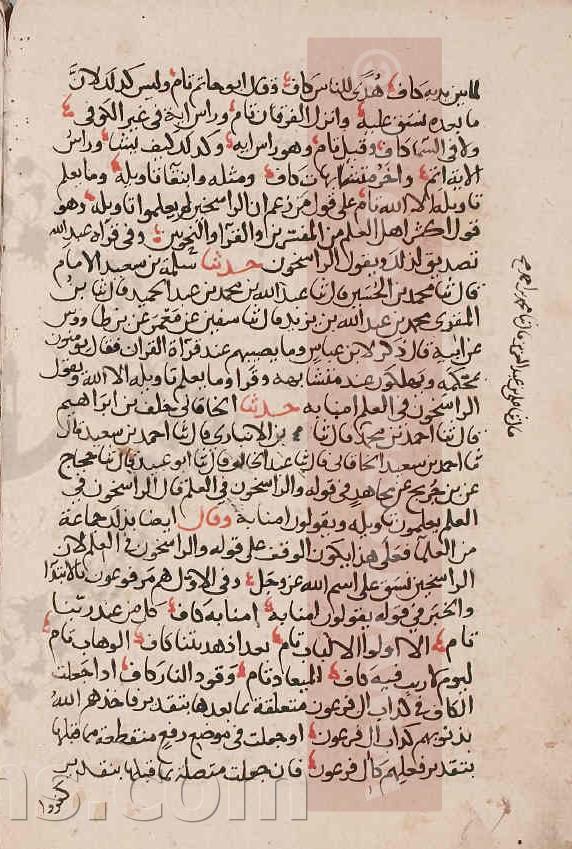 لما بين يديه كاف هدى للناس كاف وقال ابو حاتم تام وليس كذلك لان
ما بعده نسق عليه وانزل الفرقان تام وراس اية في غير الكوفي
ولا في السما كاف وقيل تام وهو راس اية وكذلك كيف يشا وراس
الاية اتم واخر متشابهات كاف ومثله وابتغا تاويله وما يعلم
تاويله الا الله تام على قول من زعم ان الراسخين لم يعلموا تاويله وهو
قول اكثر اهل العلم من المفسرين والقرا والنحويين وفي قراة عبد الله
تصديق لذلك ويقول الراسخون حدثنا سلمة بن سعيد الامام
قال نا محمد بن الحسين قال نا عبد الله بن محمد بن عبد الحميد قال نا بن
المقري محمد بن عبد الله بن يزيد قال نا سفين عن معمر عن بن طاووس
عن ابيه قال ذكر لابن عباس وما يصيبهم عند قراة القران فقال يومنون
بمحكمه ويهلكون عند متشابهه وقرا وما يعلم تاويله الا الله ويقول
الراسخون في العلم امنا به حدثنا الخاقاني خلف بن ابراهيم
قال نا احمد بن محمد قال نا بن الانباري قال نا احمد بن سعيد قال
نا احمد بن سعيد الخاقاني قال نا عبد الخالق قال نا ابو عبيد قال نا حجاج
عن بن جريج عن مجاهد في قوله والراسخون في العلم قال الراسخون في
العلم يعلمون تاويله ويقولون امنا به وقال ايضا بذلك جماعة
من العلما فعلى هذا يكون الوقف على قوله والراسخون في العلم لان
الراسخين نسق على اسم الله عز وجل وفي الاول هم مرفوعون بالابتدا
والخبر في قوله يقولون امنا به امنا به كاف كل من عند ربنا
تام الا اولوا الالباب تام بعد اذ هديتنا كاف الوهاب تام
ليوم لا ريب فيه كاف الميعاد تام وقود النار كاف اذا جعلت
الكاف في كداب ال فرعون متعلقة بما بعدها بتقدير فاخذهم الله
بذنوبهم كداب ال فرعون او جعلت في موضع رفع منقطعة مما قبلها
بتقدير فعلهم كال فرعون فان جعلت متصلة بما قبلها بتقدير
كفروا
ns.com